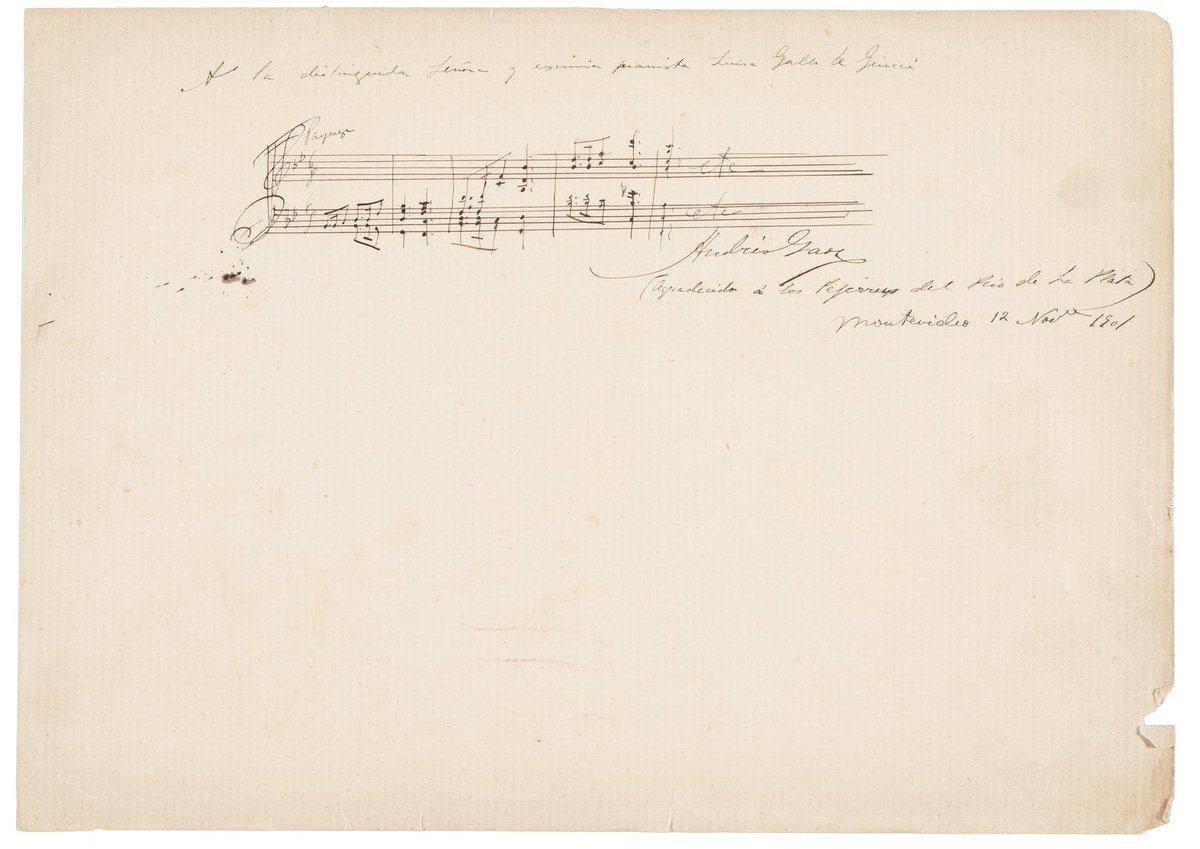 A la distinguida Señora y eximia pianista Luisa Gallo de Giucci
etc
etc
Andrés Gaos
(Agradecido á los Pejerreys del Rio de La Plata)
Montevideo 12 Nov.re 1901